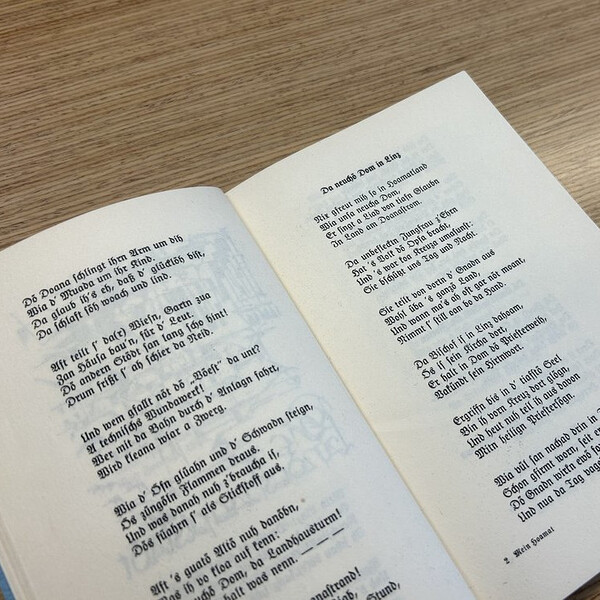 Dö Doana schlingt ihrn Arm um dih
Wia d' Muada um ihr Kind.
Da glaub ih's eh, daß d' glücklih bist,
Da schlaft söh woach und lind.
Aft teilt s' da(r) Wiesn, Gartn zua
Zan Häusa bau'n, für d' Leut.
Dö andern Stödt san lang scho hint!
Drum frißt s' ah schier da Neid.
Und wem gfallt nöt dö „Vöest" da unt?
A technischs Wundawerk!
Wer mit da Bahn durch d' Anlagn fahrt,
Wird kleana wiar a Zwerg.
Wia d' Öfn glüahn und d' Schwadn steign,
Ös züngöln Flammen draus,
Und was danah nuh z'braucha is,
Dös füahrn s' als Stickstoff aus.
Aft 's guatö Altö nuh danöbn,
Was ih vo kloa auf kenn:
Dom, da Landhausturm!
halt was nenn. — — —
Stund,
Da neuchö Dom in Linz
Nix gfreut mih so in Hoamatland
Wia unsa neucha Dom,
Er singt a Liad von tiafn Glaubn
In Land am Doanastrom.
Da unbefleckn Jungfrau z'Ehrn
Hat 's Volk dö Opfa bracht,
Und 's war koa Kreuz umasunst:
Sie beschützt uns Tag und Nacht.
Sie teilt von dortn d' Gnadn aus
Wohl üba 's ganzö Land,
Und wann ma's ah oft gar nöt moant,
Nimmt s' still oan bo da Hand.
Da Bischof is in Linz dahoam,
Ös is sein Kircha dort,
Er halt in Dom dö Priesterweih,
Vakündt sein Hirtnwort.
Ergriffn bis in d' tiafstö Seel
Bin ih vorn Kreuz dort glögn,
Und heut nuh teil ih aus davon
Mein heilign Priestersögn.
Wia vül san nachad dein in
Schon gfirmt worn, seit
Dö Gnadn wirkn ewö
Und nua da Tag
2 Mein Hoamat